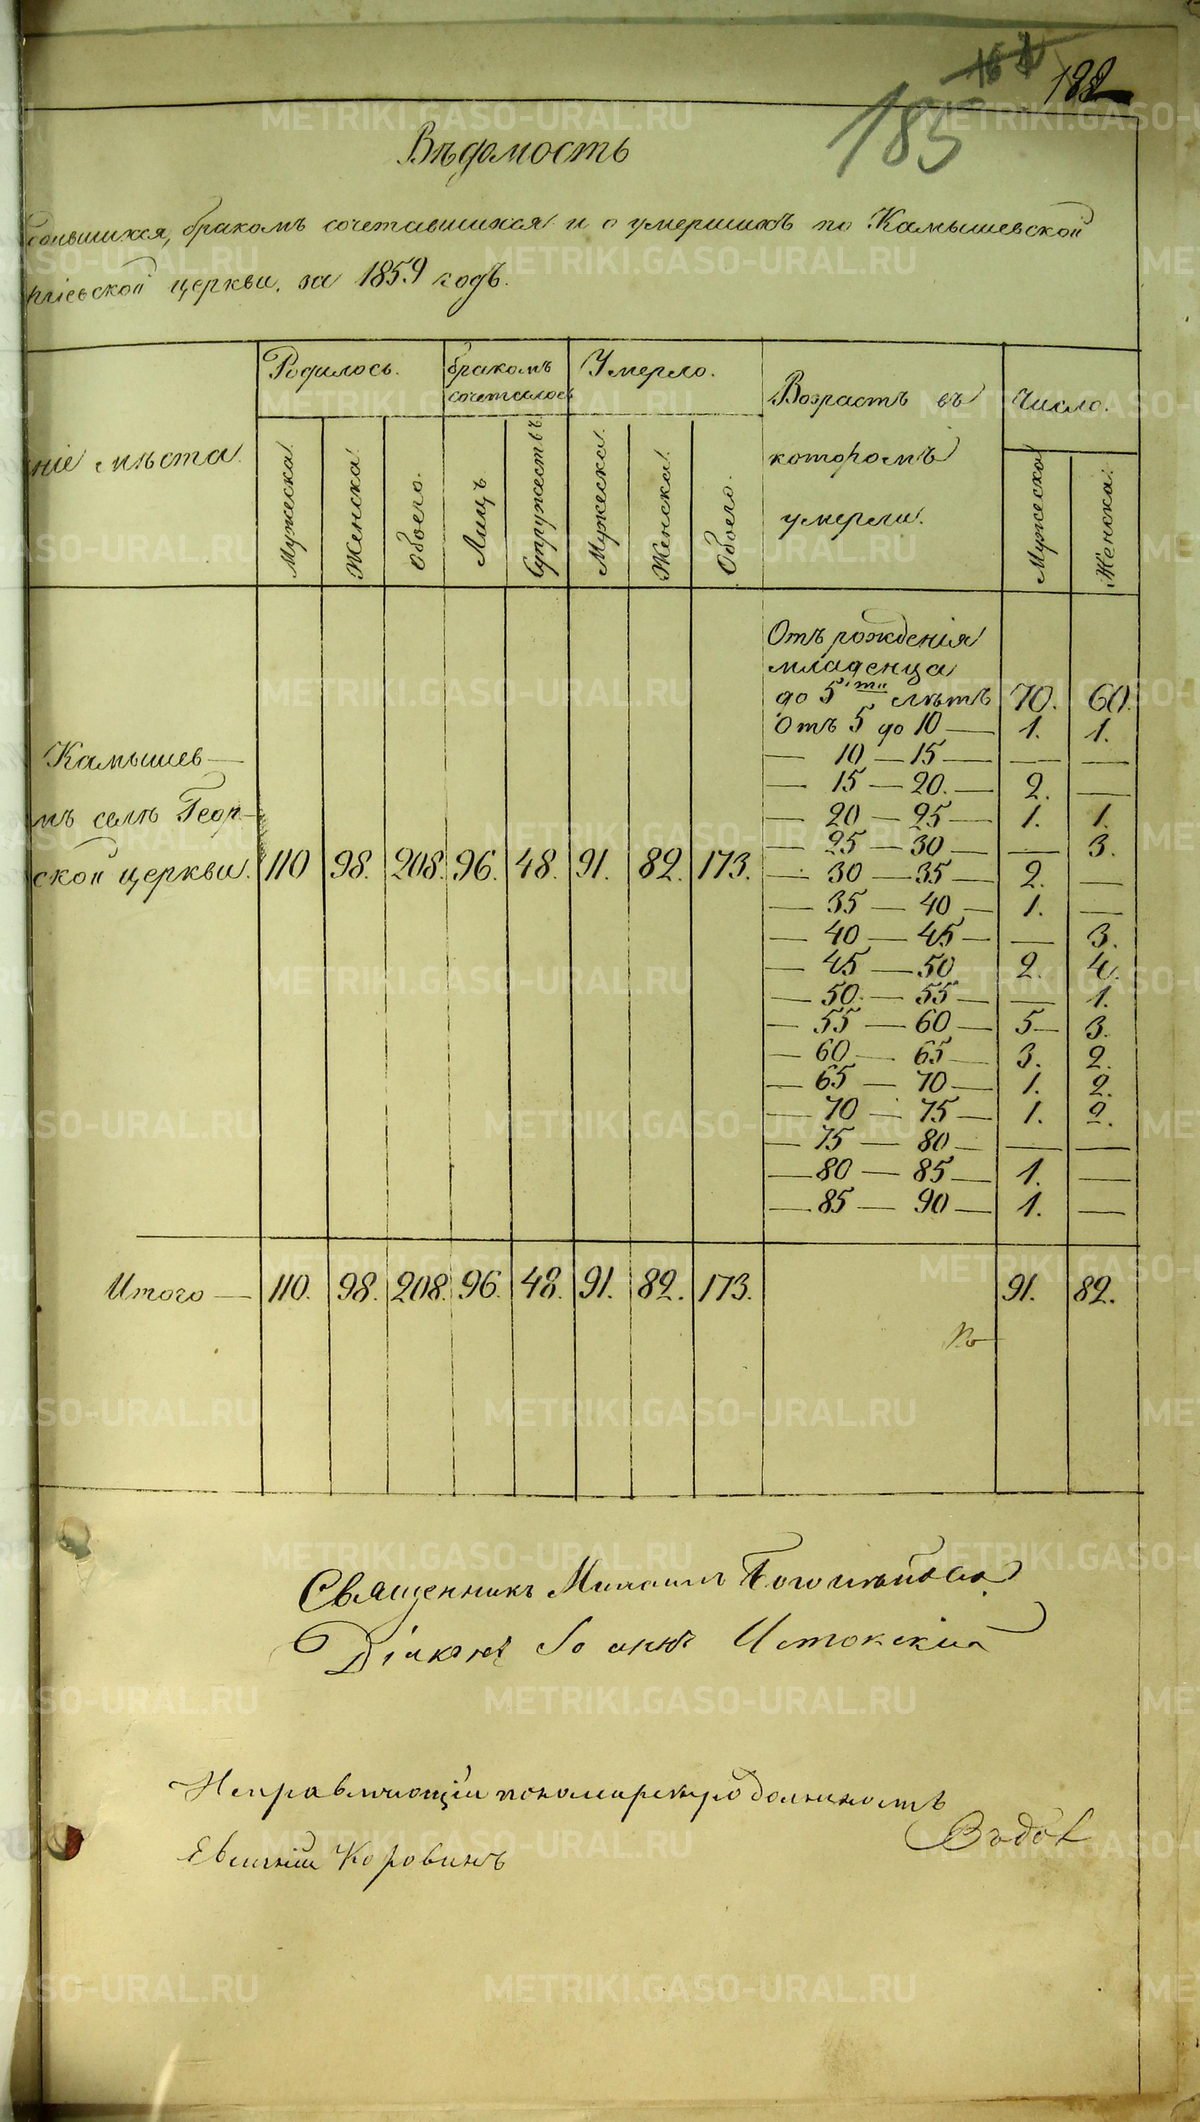 185
Вѣдомость
бракомъ сочетавшихся и о умершихъ по Камышевской
церкви, за 1859 годъ.
Родилось. бракомъ сочеталось Умерло. Возрастъ въ которомъ умерли. Число.
мѣста
Мужеска Женска Обоего. Лицъ Супружествъ Мужеска Женска Обоего. Мужеска Женска.
Отъ рожденія
младенца
до 5ти лѣтъ 70. 60.
Отъ 5 до 10 — 1. 1.
— 10 — 15 — — —
— 15 — 20. — 2. —
— 20 — 25 — 1. 1.
— 25 — 30 — — 3.
— 30 — 35 — 2. —
— 35 — 40 — 1. —
— 40 — 45 — — 3.
— 45 — 50 2. 4.
— 50 — 55 — — 1.
— 55 — 60 — 5 — 3.
— 60 — 65 — 3. 2.
— 65 — 70 — 1. 2.
— 70 — 75 — 1. 2.
— 75 — 80 — — —
— 80 — 85 — 1. —
— 85 — 90 — 1. —
Камышев—
мъ селѣ Геор—
ской церкви. 110 98. 208. 96. 48. 91. 82. 173.
Итого — 110. 98. 208. 96. 48. 91. 82. 173. 91. 82.
Священникъ Михаилъ
Діаконъ Іоаннъ Истокскій
Исправляющій пономарскую должность
Евгеній Коровинъ
METRIKI.GASO-URAL.RU